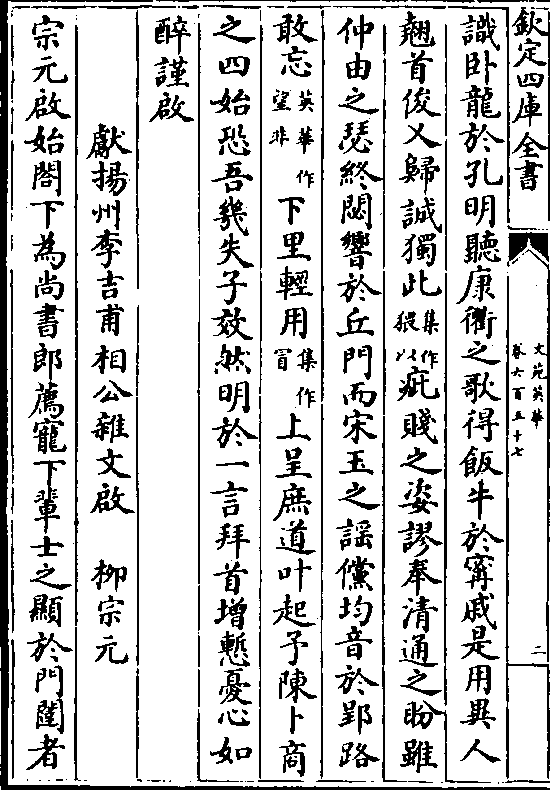 欽定四庫全書
文苑英華
卷六百五十七
二
識卧龍於孔明聽康衢之歌得飯牛於寗戚是用異人
翹首俊乂歸誠獨此集作猥以疵賤之姿謬奉清通之盼雖
仲由之瑟終閟響於丘門而宋玉之謡儻均音於郢路
敢忘英華作望非下里輕用集作冐上呈庶道叶起予陳卜商
之四始恐吾幾失子效然明於一言拜首增慙憂心如
醉謹啟
獻揚州李吉甫相公雜文啟 柳宗元
宗元啟始閤下為尚書郎薦寵下輩士之顯於門闥者